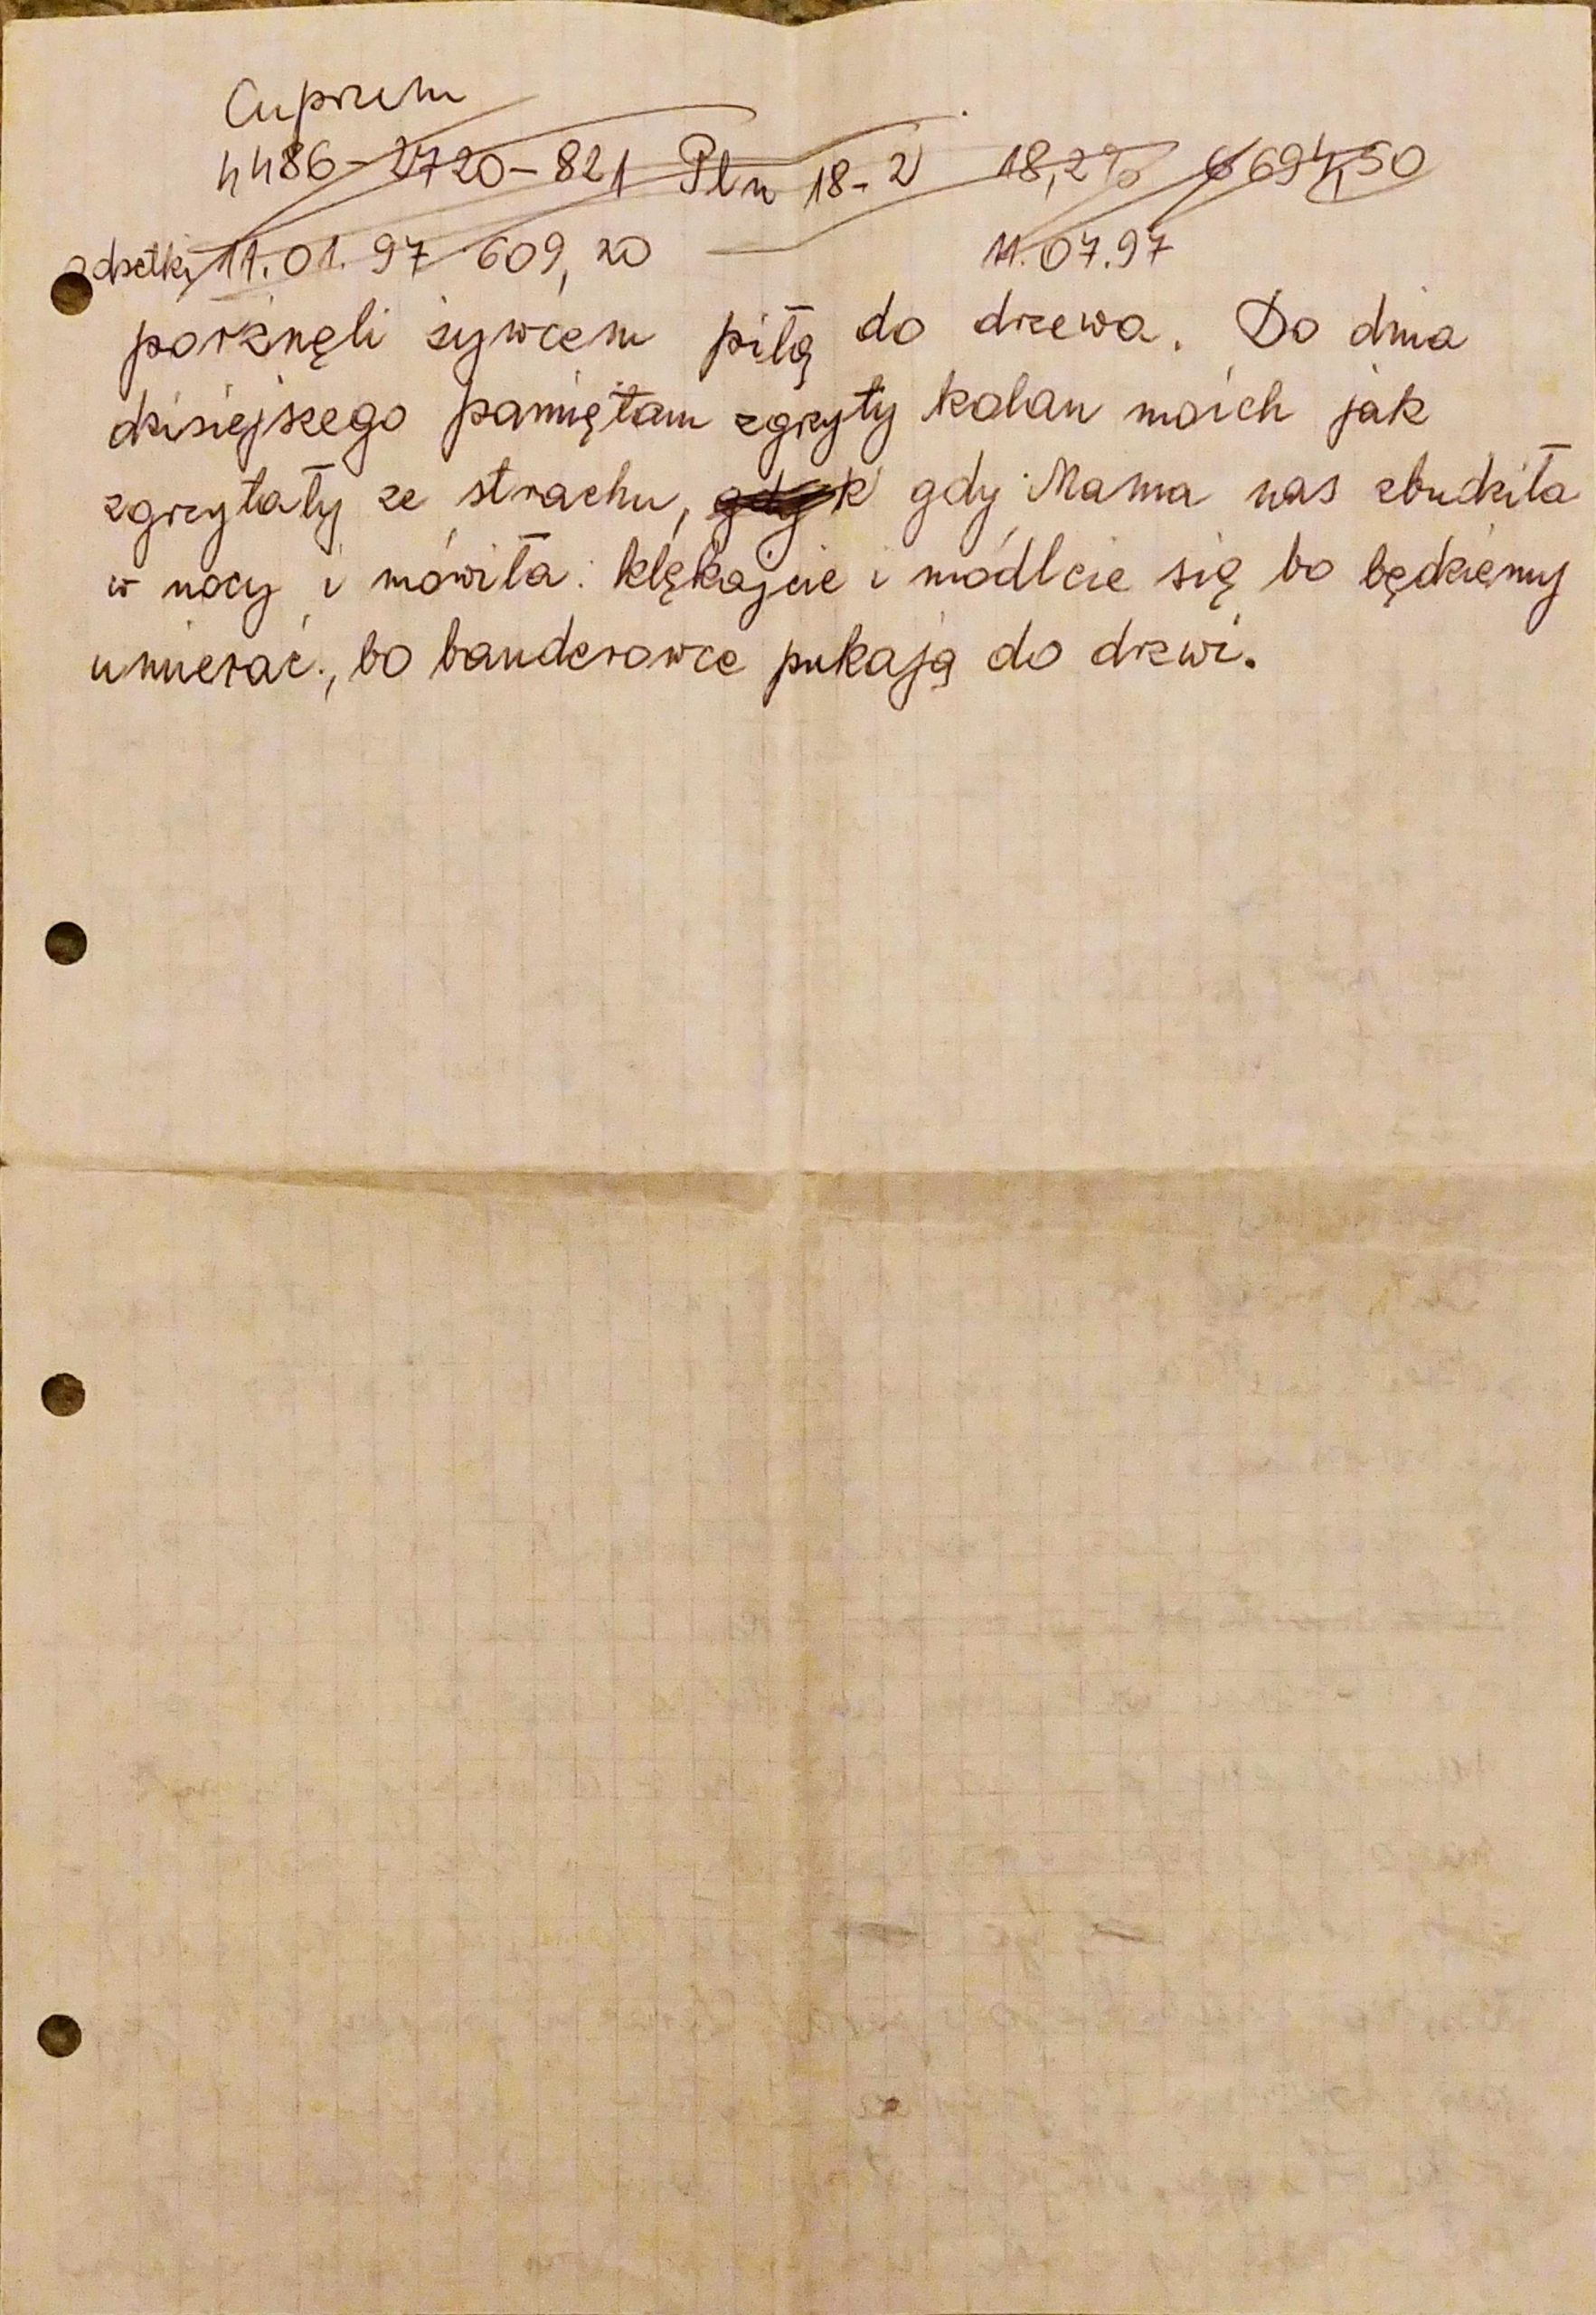 Cuprum
4486-2720-821 Pln 18-2 18,2% 6694,50
odsetki 11.01.97 609,20 — 11.07.97
porżnęli żywcem piłą do drzewa. Do dnia
dzisiejszego pamiętam zgrzyty kolan moich jak
zgrzytały ze strachu, gdy Mama nas zbudziła
w nocy i mówiła: klękajcie i módlcie się bo będziemy
umierać, bo banderowce pukają do drzwi.